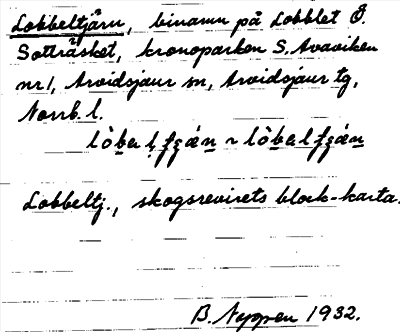 Lobbeltjärn, binamn på Lobblet Ö.
Sotträsket, kronoparken S. Avaviken
nr 1, Arvidsjaur sn, Arvidsjaur tg,
Norrb. l.
Lobbeltj., skogsrevirets block-karta.
B. Nyppen 1932.